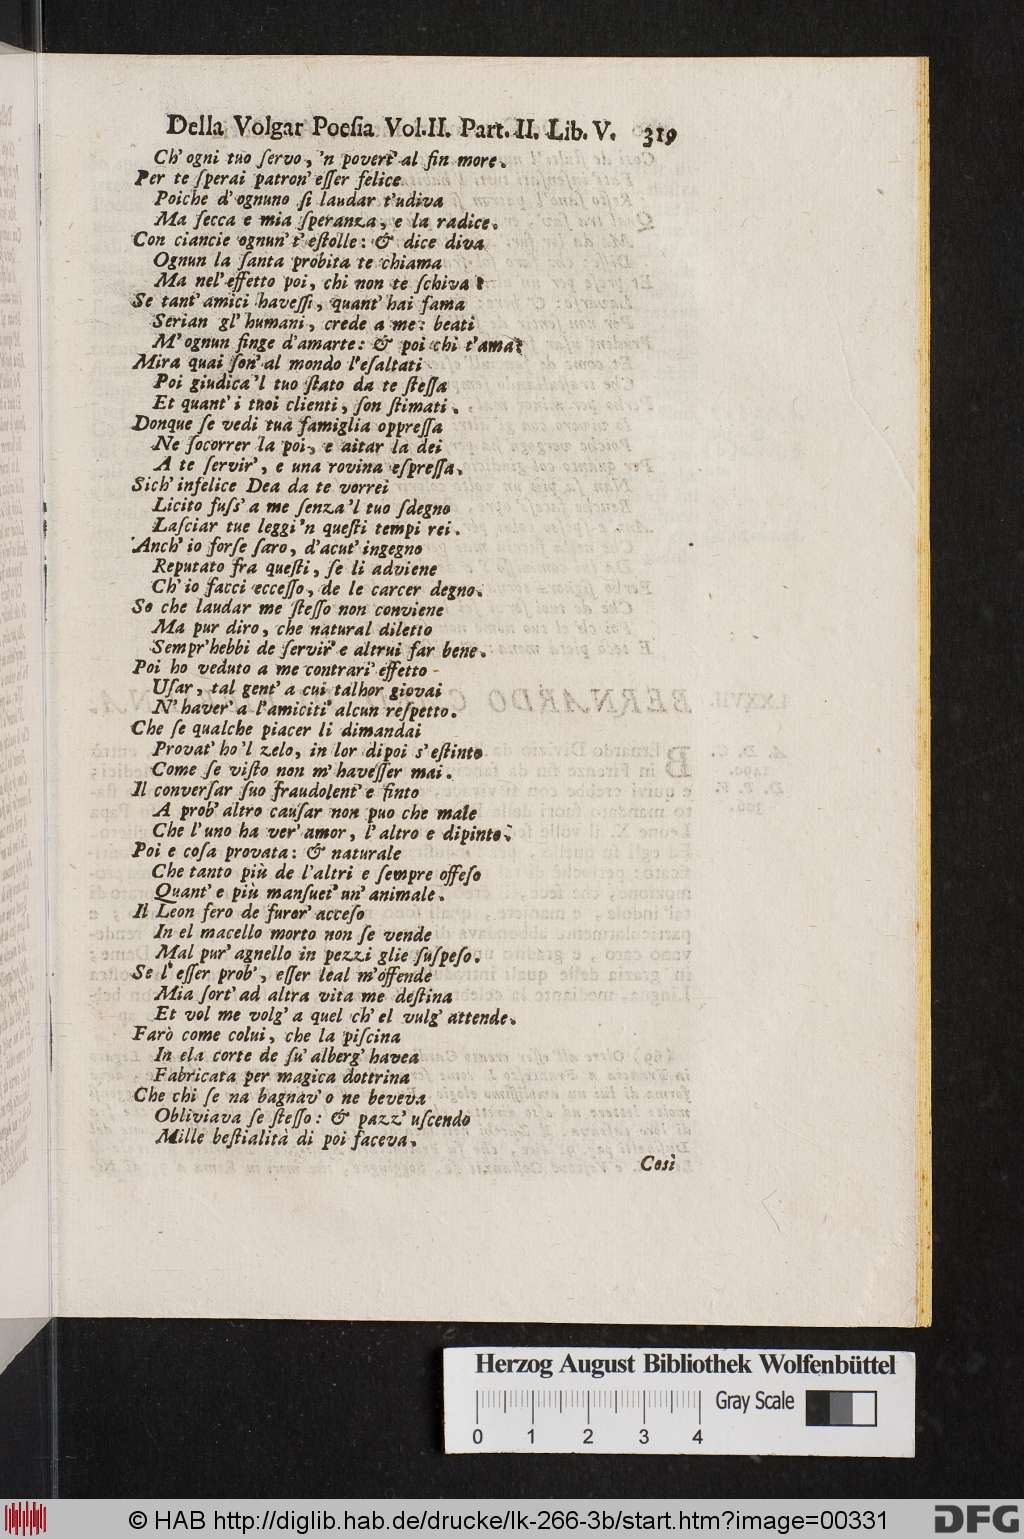 Della Volgar Poeſia Vol.II. Part. II. Lib. V. 319
Ch' ogni tuo ſervo, 'n povert' al fin more.
Per te ſperai patron' eſſer felice
Poiche d' ognuno ſi laudar t'udiva
Ma ſecca e mia ſperanza, e la radice.
Con ciancie ognun' t' eſtolle: & dice diva
Ognun la ſanta probita te chiama
Ma nel' effetto poi, chi non te ſchiva?
Se tant' amici haveſſi, quant' hai fama
Serian gl' humani, crede a me: beati
M' ognun finge d'amarte: & poi chi t'ama?
Mira quai ſon' al mondo l'eſaltati
Poi giudica 'l tuo ſtato da te ſteſſa
Et quant' i tuoi clienti, ſon ſtimati.
Donque ſe vedi tua famiglia oppreſſa
Ne ſocorrer la poi, e aitar la dei
A te ſervir', e una rovina eſpreſſa.
Sich' infelice Dea da te vorrei
Licito fuſs' a me ſenza 'l tuo ſdegno
Laſciar tue leggi 'n queſti tempi rei.
Anch' io forſe ſaro, d'acut' ingegno
Reputato fra queſti, ſe li adviene
Ch' io facci ecceſſo, de le carcer degno.
So che laudar me ſteſſo non conviene
Ma pur diro, che natural diletto
Sempr' hebbi de ſervir' e altrui far bene.
Poi ho veduto a me contrari' effetto
Uſar, tal gent' a cui talhor giovai
N' haver' a l'amiciti' alcun reſpetto.
Che ſe qualche piacer li dimandai
Provat' ho 'l zelo, in lor dipoi s' eſtinto
Come ſe viſto non m' haveſſer mai.
Il converſar ſuo fraudolent' e finto
A prob' altro cauſar non puo che male
Che l' uno ha ver' amor, l' altro e dipinto.
Poi e coſa provata: & naturale
Che tanto più de l'altri e ſempre offeſo
Quant' e più manſuet' un' animale.
Il Leon fero de furor' acceſo
In el macello morto non ſe vende
Mal pur' agnello in pezzi glie ſuſpeſo.
Se l' eſſer prob', eſſer leal m'offende
Mia ſort' ad altra vita me deſtina
Et vol me volg' a quel ch' el vulg' attende.
Farò come colui, che la piſcina
In ela corte de ſu' alberg' havea
Fabricata per magica dottrina
Che chi ſe na bagnav' o ne beveva
Obliviava ſe ſteſſo: & pazz' uſcendo
Mille beſtialità di poi faceva.
Così
Herzog August Bibliothek Wolfenbüttel
Gray Scale
0 1 2 3 4
© HAB http://diglib.hab.de/drucke/lk-266-3b/start.htm?image=00331
DFG